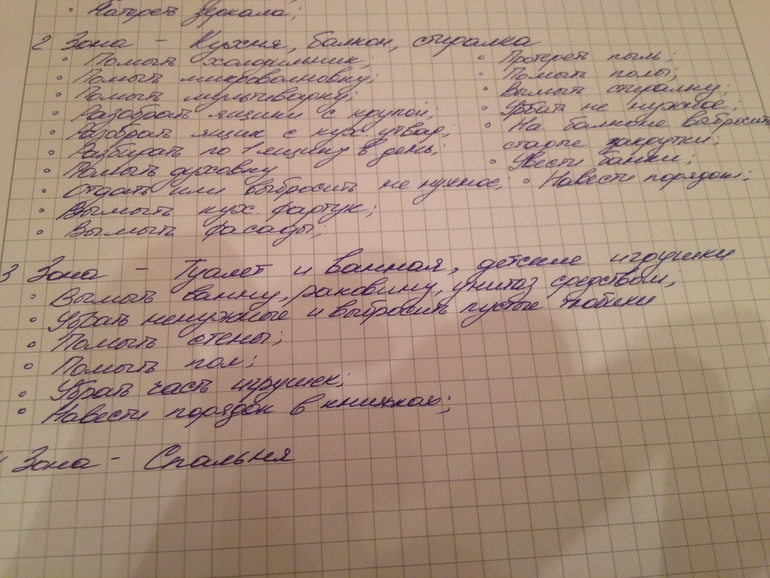 • Натереть зеркала;
2 Зона - Кухня, балкон, стиралка
• Помыть холодильник;
• Помыть микроволновку;
• Помыть мультиварку;
• Разобрать ящики с крупой;
• Разобрать ящик с кух. утвар;
• Разбирать по 1 ящику в день;
• Помыть духовку
• Отдать или выбросить не нужное;
• Вымыть кух. фартук;
• Вымыть фасады;
• Протереть пыль;
• Помыть полы;
• Вымыть стиралку;
• Убрать не нужное;
• На балконе выбросить
старые закрутки;
• Увести банки;
• Навести порядок;
3 Зона - Туалет и ванная, детские игрушки
• Вымыть ванну, раковину, унитаз средством;
• Убрать ненужные и выбросить пустые тюбики
• Помыть стены;
• Помыть пол;
• Убрать часть игрушек;
• Навести порядок в книжках;
Зона - Спальня